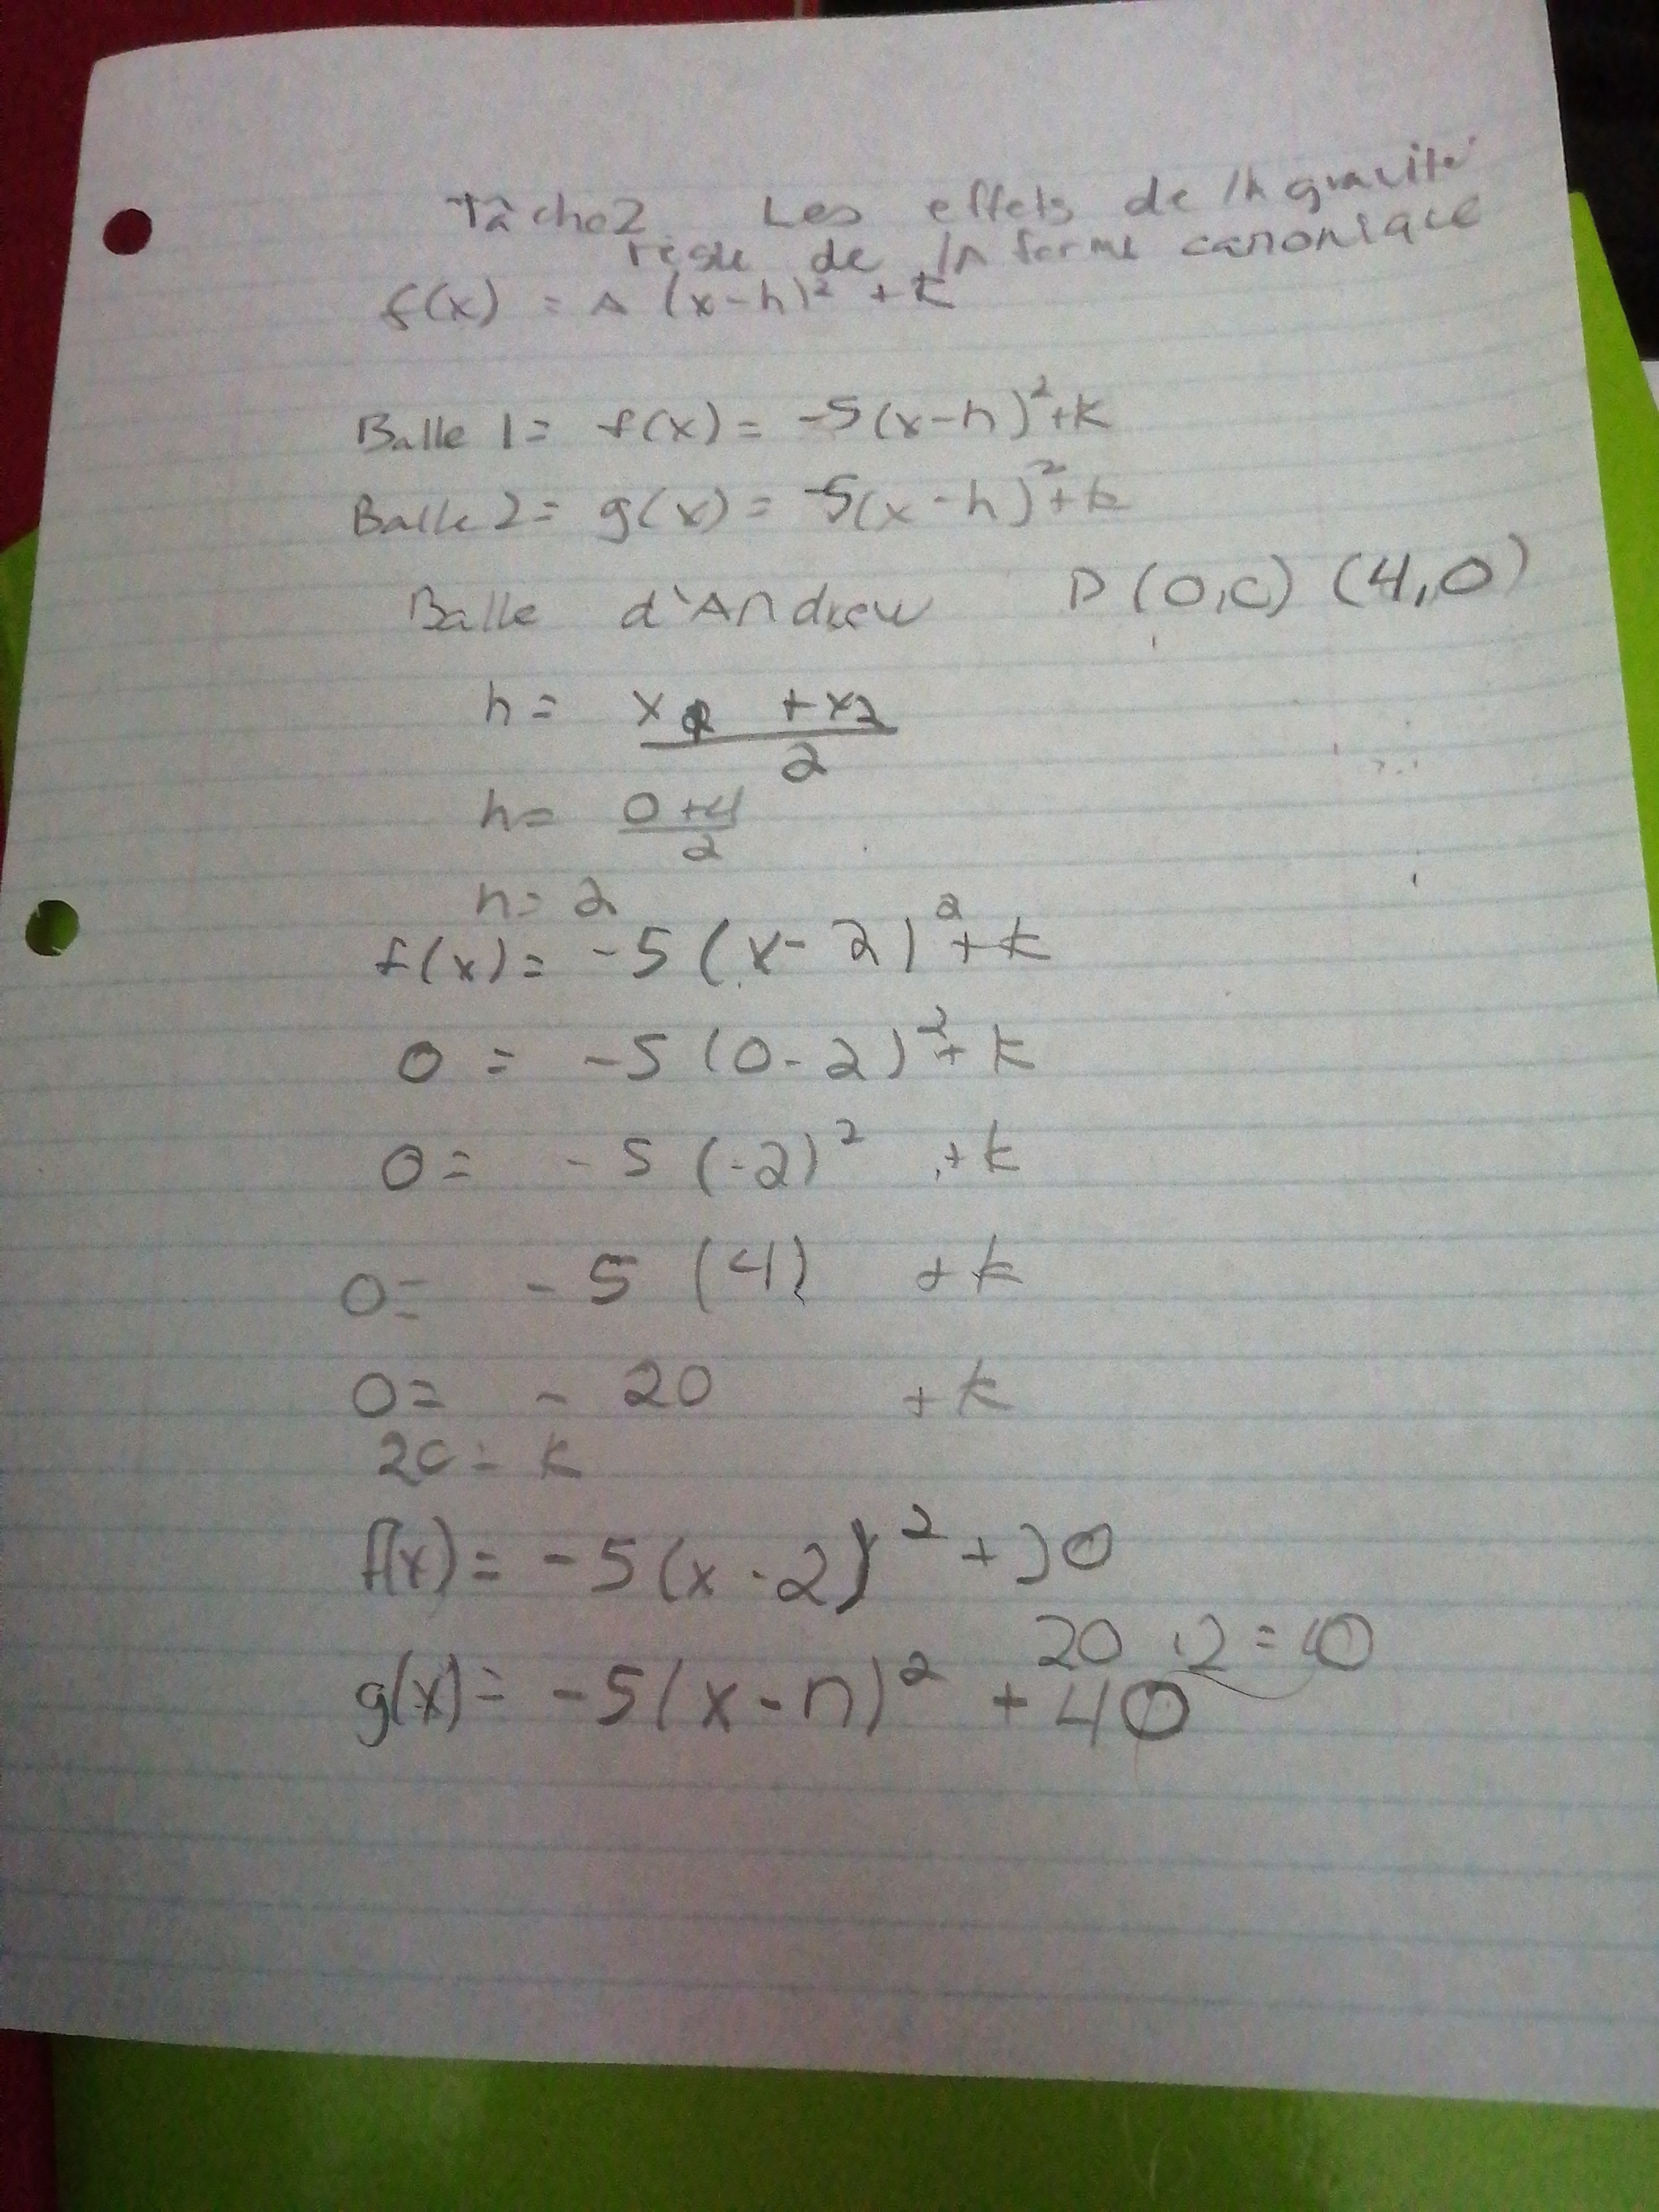 Tâche 2 Les effets de la gravité
règle de la forme canonique
f(x) = A (x-h)² + k
Balle 1 = f(x) = -5(x-h)²+k
Balle 2 = g(x) = -5(x-h)²+k
Balle d'Andrew P (0,0) (4,0)
h = x1 + x2
2
h = 0+4
2
h = 2
f(x) = -5 (x-2)² + k
0 = -5 (0-2)² + k
0 = -5 (-2)² + k
0 = -5 (4) + k
0 = -20 + k
20 = k
f(x) = -5(x-2)² + 20
20 · 2 = 40
g(x) = -5(x-h)² + 40